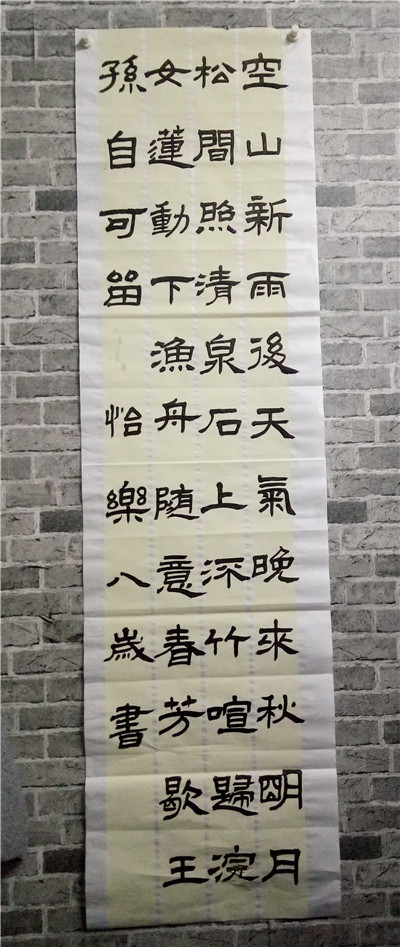 空山新雨後天氣晚來秋明月
松間照清泉石上㳅竹喧歸浣
女蓮動下漁舟随意春芳歇王
孫自可留 怡樂八歲書